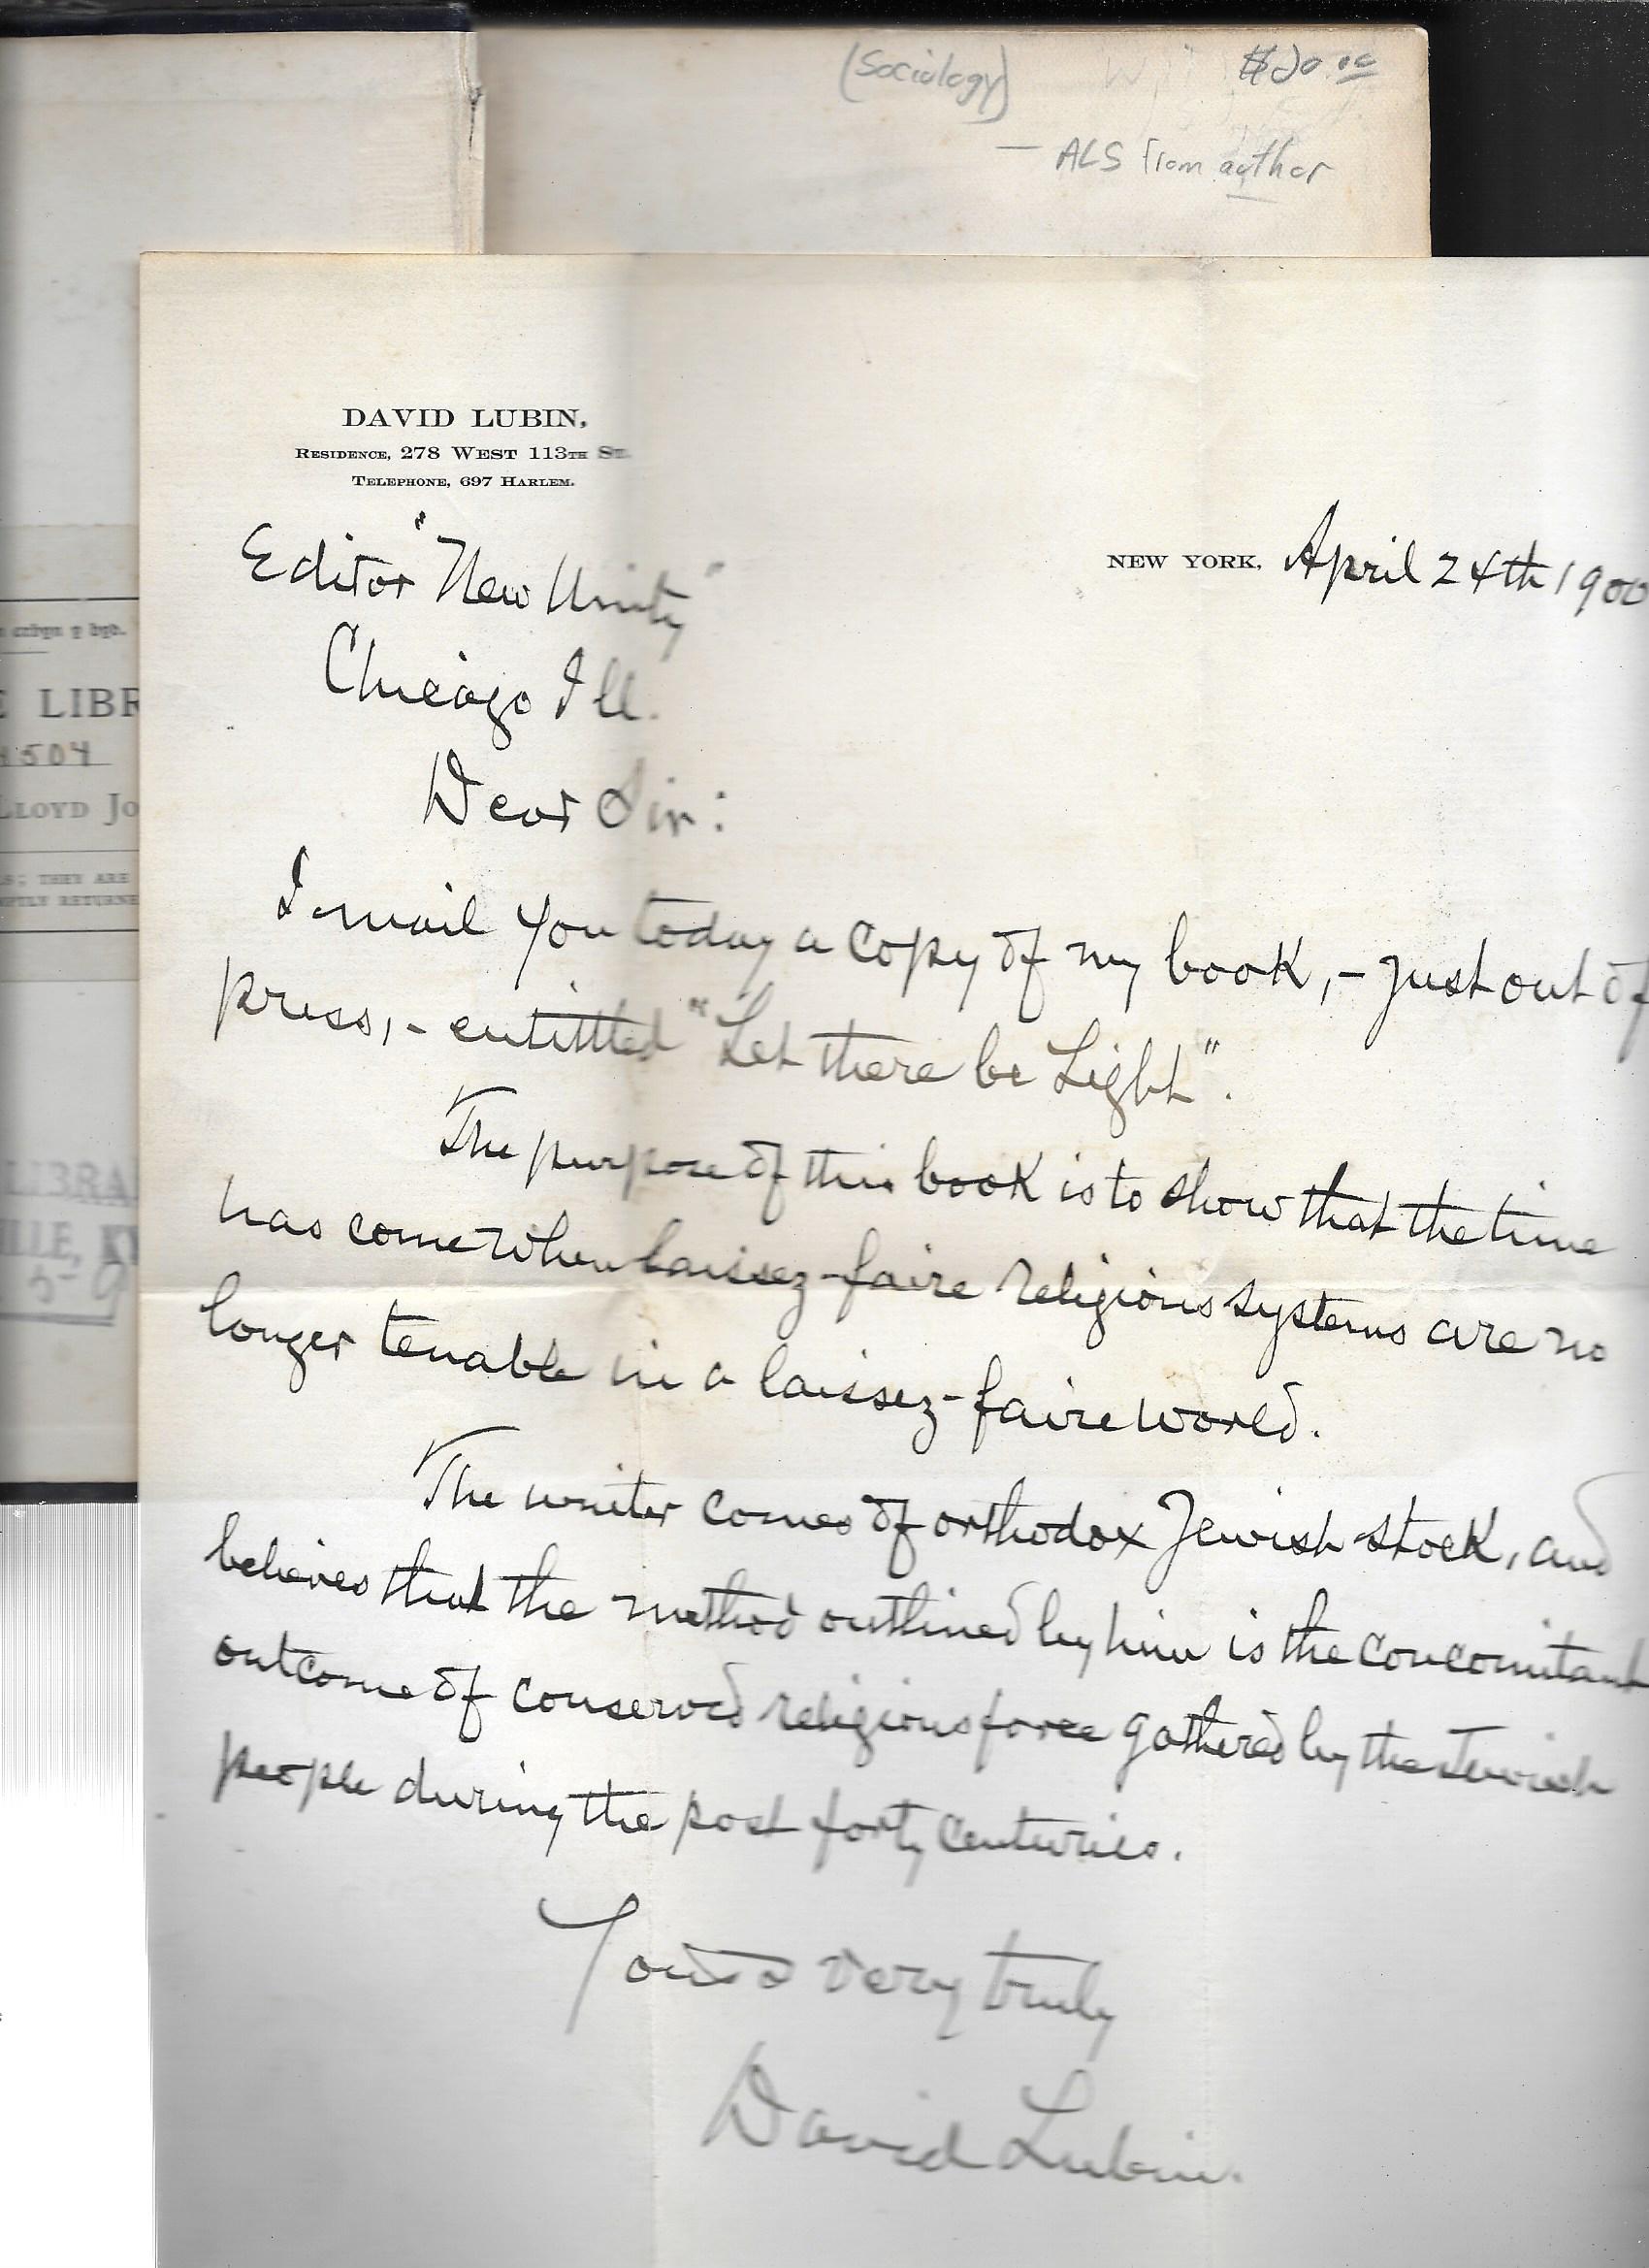 (Sociology) $20.00
— ALS from author
DAVID LUBIN,
RESIDENCE, 278 WEST 113TH ST.
TELEPHONE, 697 HARLEM.
NEW YORK, April 24th 1900
Editor "New Unity"
Chicago Ill.
Dear Sir:
I mail you today a copy of my book, - just out of
press, - entittled "Let there be Light".
The purpose of this book is to show that the time
has come when laissez-faire religious systems are no
longer tenable in a laissez-faire world.
The writer comes of orthodox Jewish stock, and
believes that the method outlined by him is the concomitant
outcome of conserved religious force gathered by the Jewish
people during the past forty centuries.
Yours very truly
David Lubin.
LIBR
504
LLOYD JO
THEY ARE
RETURNE
LIBRA
ILLE, KY